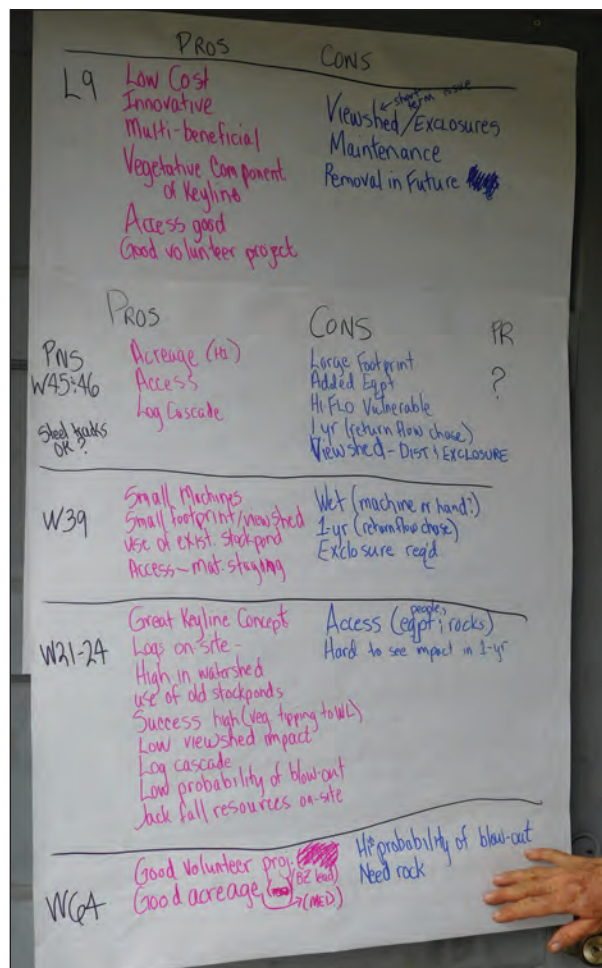 PROS CONS
L9
Low Cost
Innovative
Multi-beneficial
Vegetative Component
of Keyline
Access good
Good volunteer project
short term issue
Viewshed/EXCLOSURES
Maintenance
Removal in Future
PROS CONS PR
PNS
W45:46
Steel tracks
OK?
Acreage (Hi)
Access
Log Cascade
Large Footprint
Added Eqpt
Hi FLO Vulnerable
1 yr (return flow chase)
Viewshed - DIST & EXCLOSURE
?
W39
Small Machines
Small footprint/viewshed
use of exist. stockpond
Access - mat. staging
Wet (machine or hand?)
1-yr (return flow chase)
Exclosure req'd
W21-24
Great Keyline Concept
Logs on-site -
High in watershed
use of old stockponds
Success high (veg tipping to WL)
Low viewshed impact
Log cascade
Low probability of blow-out
Jack fall resources on-site
people,
Access (eqpt & rocks)
Hard to see impact in 1-yr
W64
Good volunteer proj.
(BZ lead)
Good acreage
(MED)
Hi probability of blow-out
Need rock